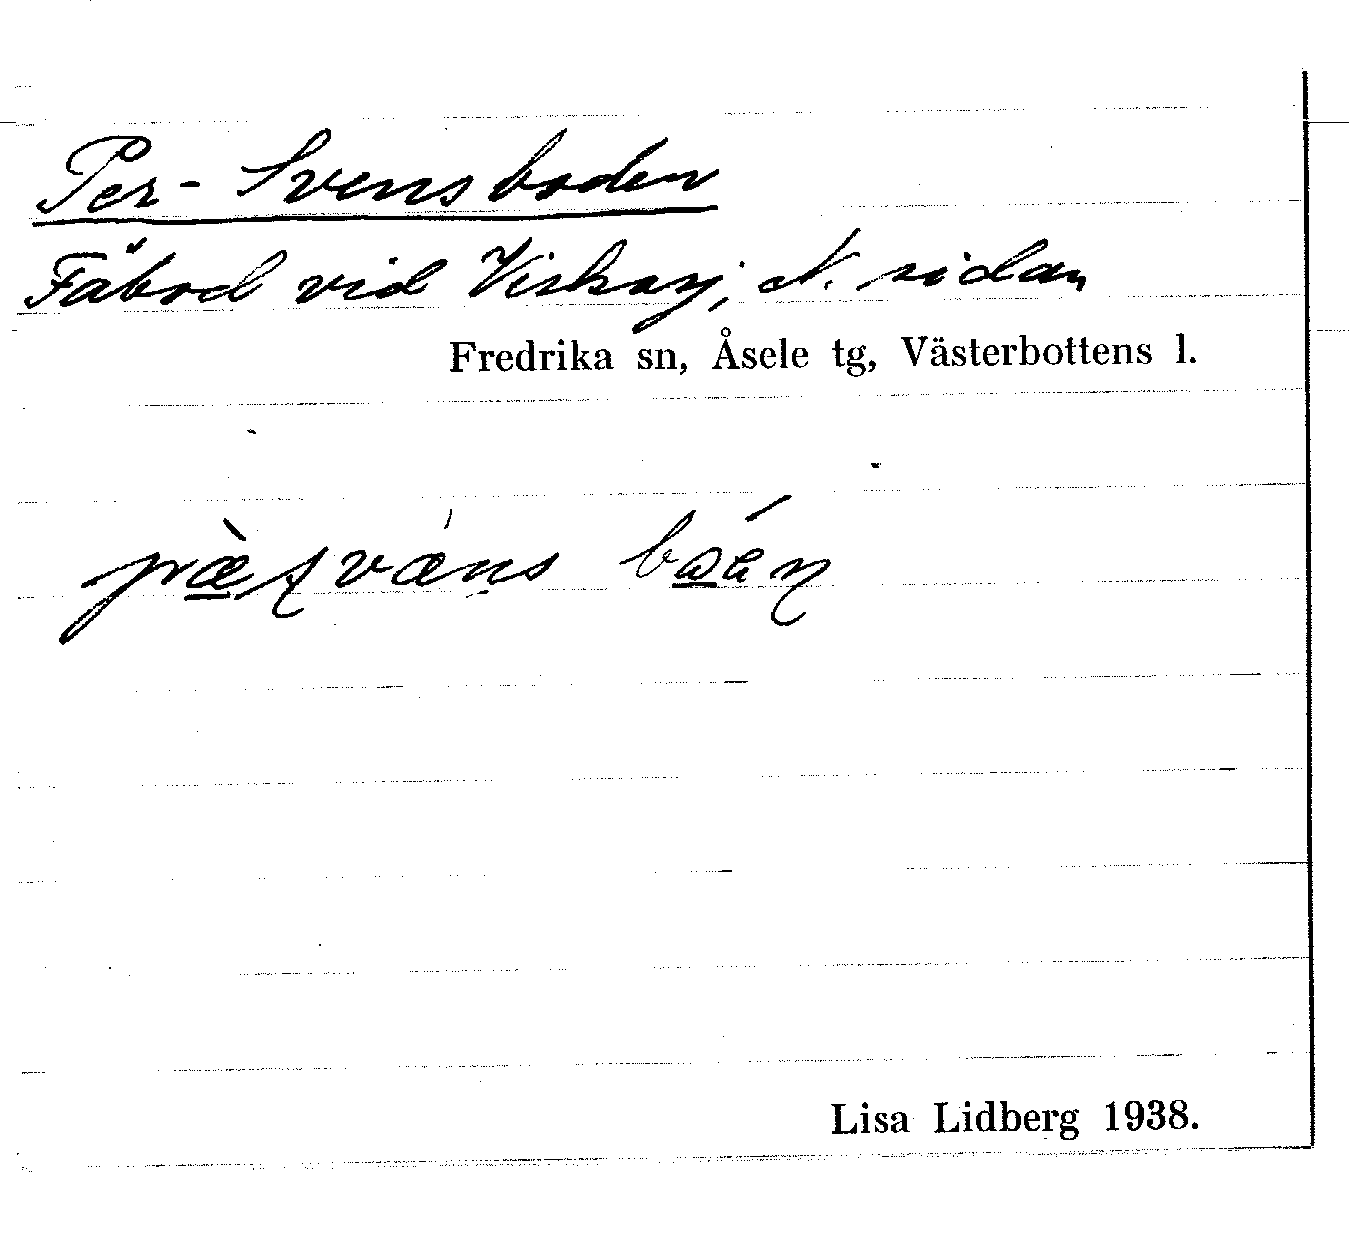 Per-Svensboden
Fäbod vid Viskasj, N. sidan
Fredrika sn, Åsele tg, Västerbottens l.
Lisa Lidberg 1938.